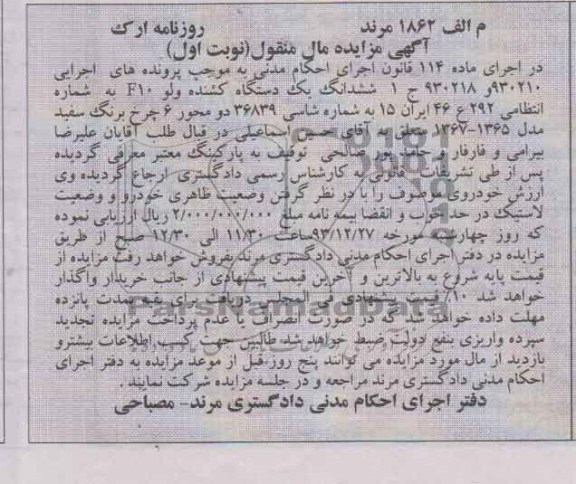 م الف ۱۸۶۲ مرند روزنامه ارک
آگهی مزایده مال منقول(نوبت اول)
در اجرای ماده ۱۱۴ قانون اجرای احکام مدنی به موجب پرونده های اجرایی
۹۳۰۲۱۰و ۹۳۰۲۱۸ ج ۱ ششدانگ یک دستگاه کشنده ولو F10 به شماره
انتظامی ۲۹۲ ع ۴۶ ایران ۱۵ به شماره شاسی ۳۶۸۳۹ دو محور ۶ چرخ برنگ سفید
مدل ۱۳۶۵-۱۳۶۷ متعلق به آقای حسین اسماعیلی در قبال طلب آقایان علیرضا
بیرامی و فارفار و حامد پور صالحی توقیف به پارکینگ معتبر معرفی گردیده
پس از طی تشریفات قانونی به کارشناس رسمی دادگستری ارجاع گردیده وی
ارزش خودروی موصوف را با در نظر گرفتن وضعیت ظاهری خودرو و وضعیت
لاستیک در حد خوب و انقضا بیمه نامه مبلغ ۲/۰۰۰/۰۰۰/۰۰۰ ریال ارزیابی نموده
که روز چهارشنبه مورخه ۹۳/۱۲/۲۷ساعت ۱۱/۳۰ الی ۱۲/۳۰ صبح از طریق
مزایده در دفتر اجرای احکام مدنی دادگستری مرند بفروش خواهد رفت مزایده از
قیمت پایه شروع به بالاترین و آخرین قیمت پیشنهادی از جانب خریدار واگذار
خواهد شد ۱۰٪ قیمت پیشنهادی فی المجلس دریافت برای بقیه بمدت پانزده
مهلت داده خواهد شد که در صورت انصراف یا عدم پرداخت مزایده تجدید
سپرده واریزی بنفع دولت ضبط خواهد شد طالبین جهت کسب اطلاعات بیشترو
بازدید از مال مورد مزایده می توانند پنج روز قبل از موعد مزایده به دفتر اجرای
احکام مدنی دادگستری مرند مراجعه و در جلسه مزایده شرکت نمایند .
دفتر اجرای احکام مدنی دادگستری مرند- مصباحی
ParsNamadData